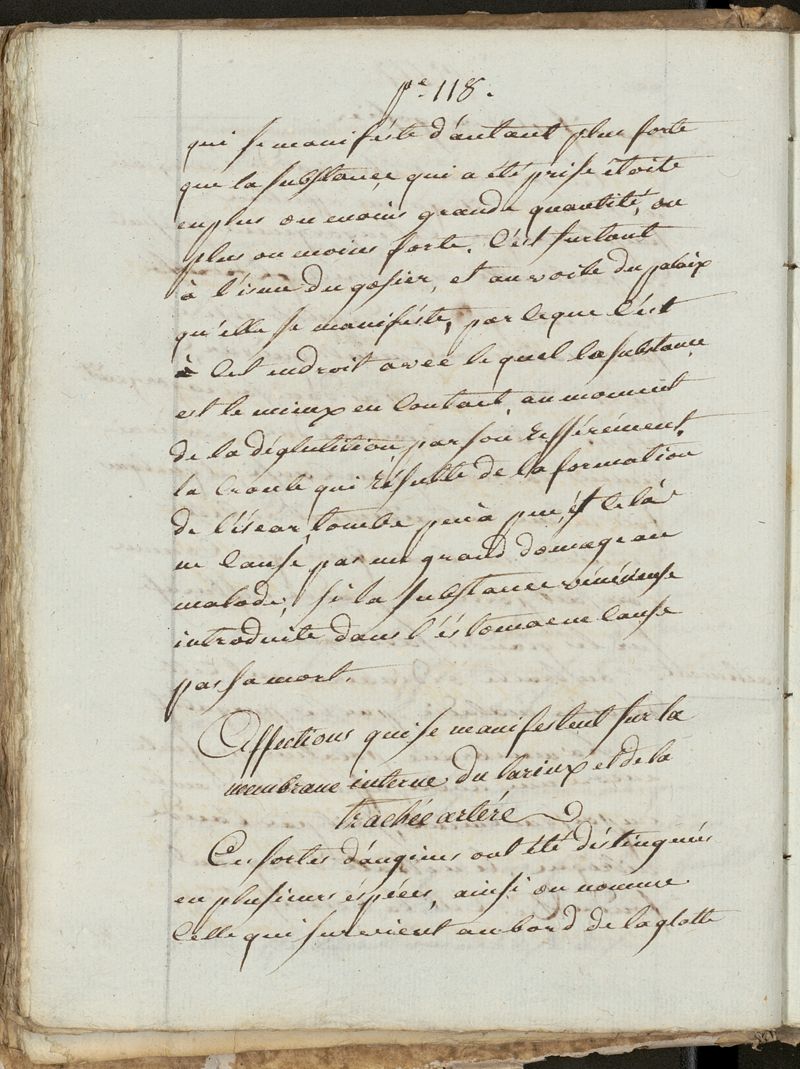 pe. 118.
qui se manifeste d'autant plus forte
que la substance, qui a été prise étoite
en plus ou moins grande quantité, ou
plus ou moins forte. C'est surtout
à l'isme du gosier, et au voile du palaix
qu'elle se manifeste, parleque c'est
à cet endroit avec lequel la substance
est le mieux en contact, au moment
de la déglutition, par son resserément.
la croute qui résulte de la formation
de l'éscar, tombe peu à peu, et celà
ne cause pas un grand domage au
malade, si la substance vénéneuse
introduite dans l'éstomac ne cause
pas sa mort.
Affections qui se manifestent sur la
membrane interne du larinx et de la
trachée artère
Ces sortes d'angines ont été distinguées
en plusieurs éspéces, ainsi on nomme
celle qui survient au bord de la glotte